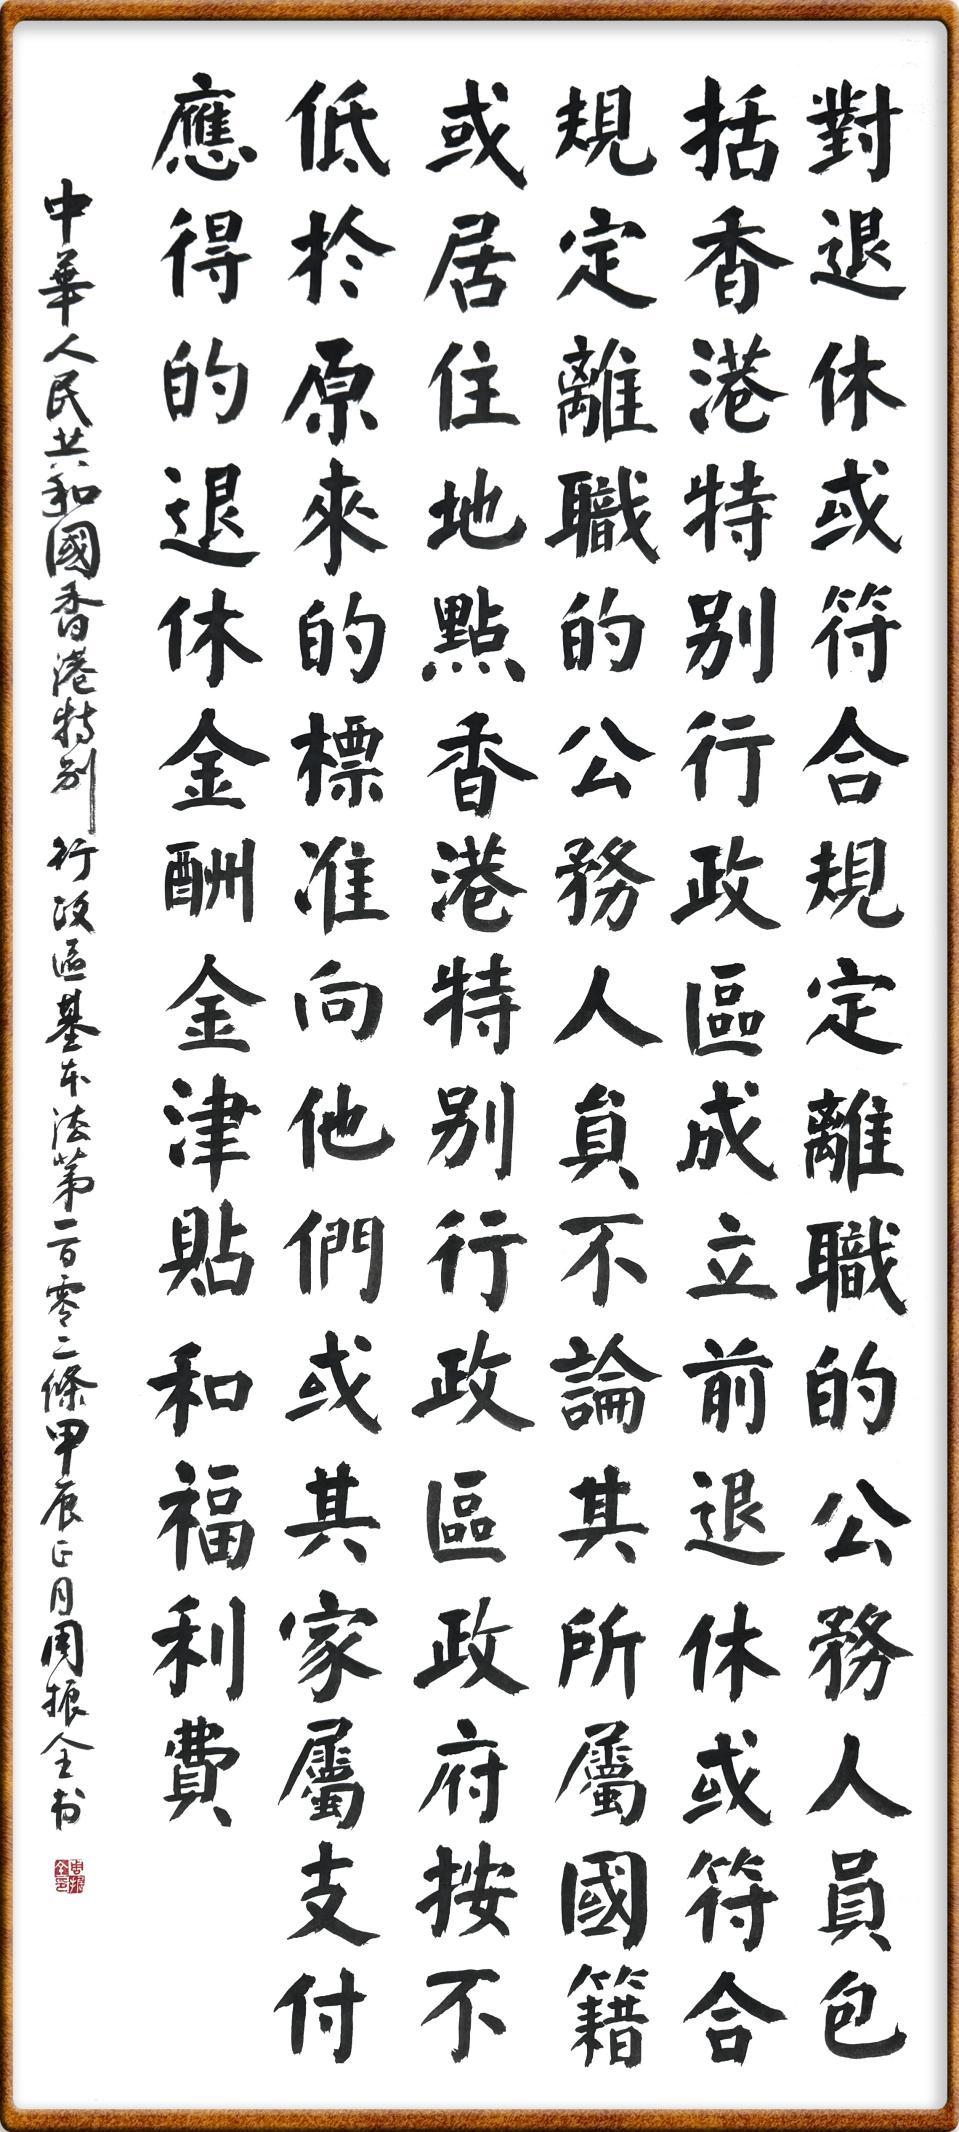 對退休或符合規定離職的公務人員包
括香港特别行政區成立前退休或符合
規定離職的公務人員不論其所屬國籍
或居住地點香港特别行政區政府按不
低於原來的標准向他們或其家屬支付
應得的退休金酬金津貼和福利費
中華人民共和國香港特别行政區基本法第一百零二條甲辰正月周振全书
周振全印